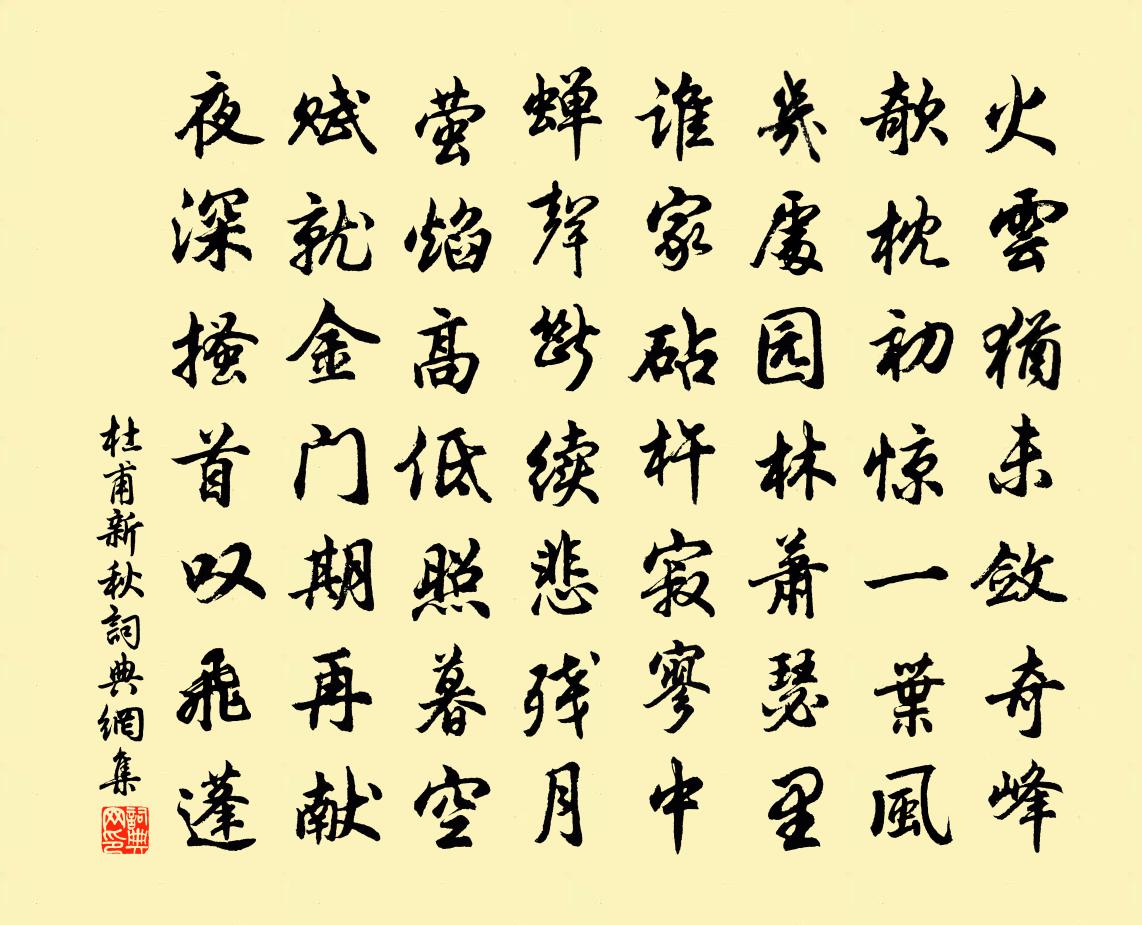 火雲猶未敛奇峰
欹枕初惊一葉風
幾處园林萧瑟里
谁家砧杵寂寥中
蝉聲斷续悲残月
萤焰高低照暮空
赋就金门期再献
夜深搔首叹飛蓬
杜甫新秋詞典網集
詞典网印